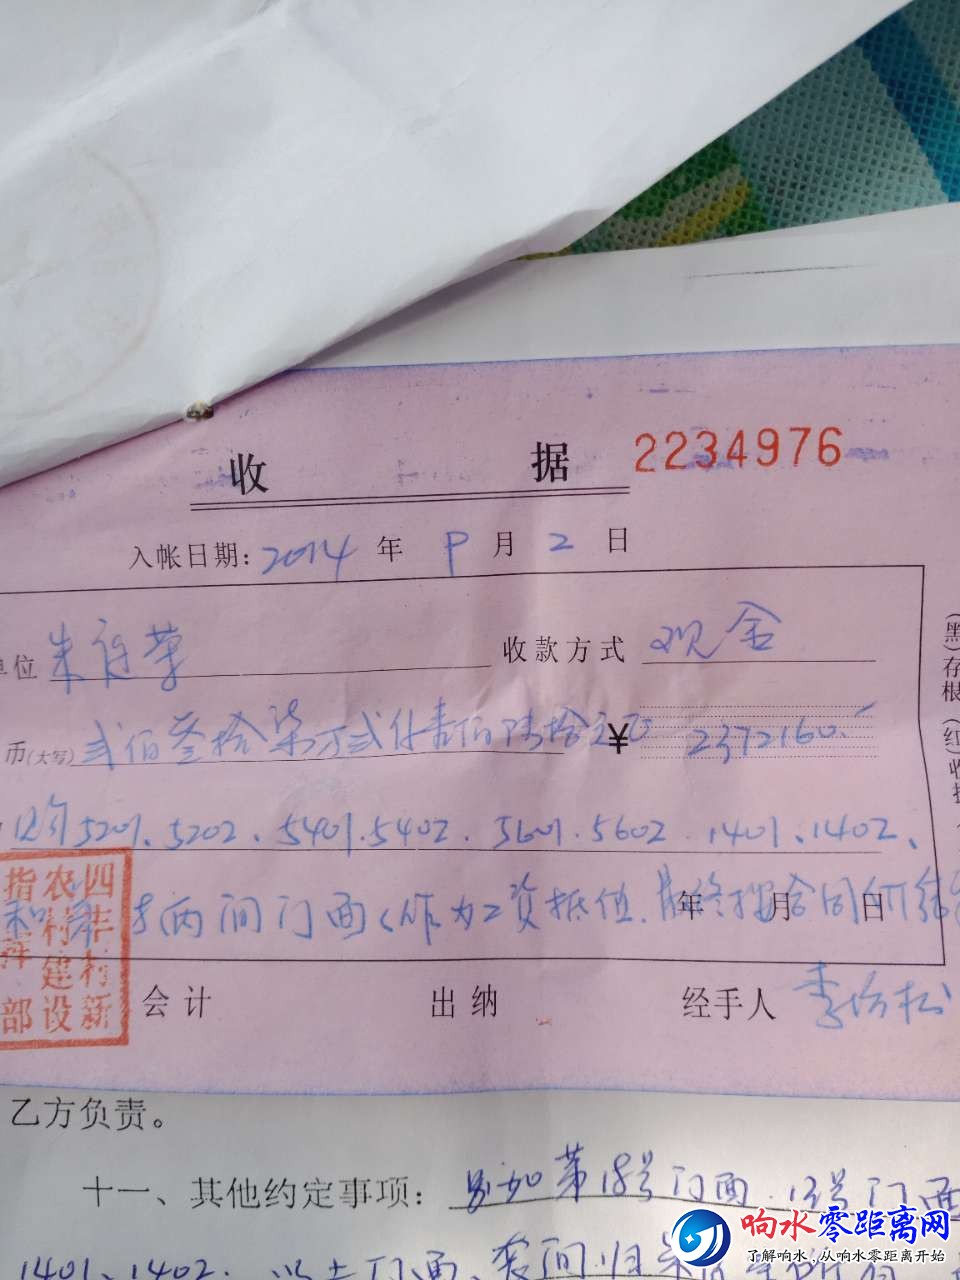 收 据 2234976
入帐日期: 2014 年 9 月 2 日
单位 朱 荣 收款方式 现金
币(大写) 贰佰叁拾柒万贰仟壹佰陆拾元正 ¥ 2372160.
5201、5202、5401、5402、5601、5602、1401、1402、
两间门面(作为工资抵值 最终按合同价结
年 月 日
(黑)存根 (红)收据
四丰村新
农村建设
指挥部
会计 出纳 经手人 李 松
乙方负责。
十一、其他约定事项: 另加第18号门面、13号门面
1401、1402. 以上门面、套间归
响水零距离网
了解响水,从响水零距离开始